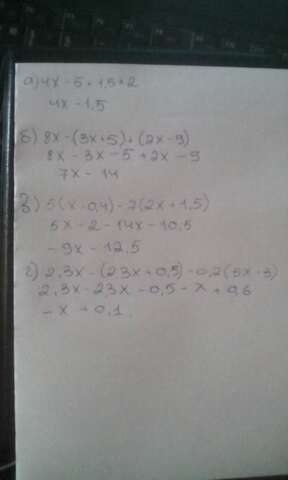 а) 4x - 5 + 1,5 + 2
4x - 1,5
б) 8x - (3x + 5) + (2x - 9)
8x - 3x - 5 + 2x - 9
7x - 14
в) 5(x - 0,4) - 7(2x + 1,5)
5x - 2 - 14x - 10,5
- 9x - 12,5
г) 2,3x - (2,3x + 0,5) - 0,2(5x - 3)
2,3x - 2,3x - 0,5 - x + 0,6
- x + 0,1